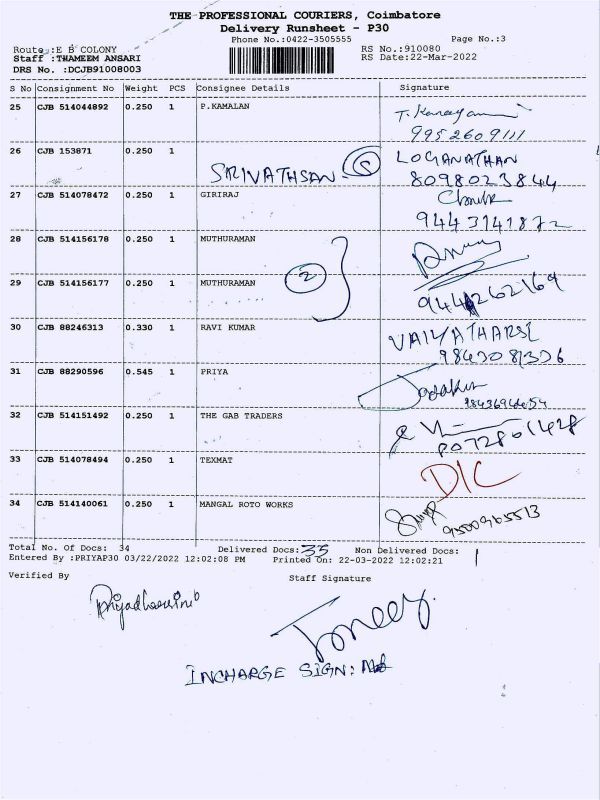 THE PROFESSIONAL COURIERS, Coimbatore
Delivery Runsheet - P30
Phone No.:0422-3505555 Page No.:3
Route :E B COLONY RS No.:910080
Staff :THAMEEM ANSARI RS Date:22-Mar-2022
DRS No. :DCJB91008003
S No Consignment No Weight PCS Consignee Details Signature
25 CJB 514044892 0.250 1 P.KAMALAN
9952609111
26 CJB 153871 0.250 1 LOGANATHAN
SRIVATHSAN 8098023844
27 CJB 514078472 0.250 1 GIRIRAJ
9443141872
28 CJB 514156178 0.250 1 MUTHURAMAN
29 CJB 514156177 0.250 1 MUTHURAMAN 2
30 CJB 88246313 0.330 1 RAVI KUMAR
31 CJB 88290596 0.545 1 PRIYA
32 CJB 514151492 0.250 1 THE GAB TRADERS
33 CJB 514078494 0.250 1 TEXMAT D/C
34 CJB 514140061 0.250 1 MANGAL ROTO WORKS
9500965513
Total No. Of Docs: 34 Delivered Docs: 33 Non Delivered Docs: 1
Entered By :PRIYAP30 03/22/2022 12:02:08 PM Printed On: 22-03-2022 12:02:21
Verified By Staff Signature
INCHARGE SIGN: